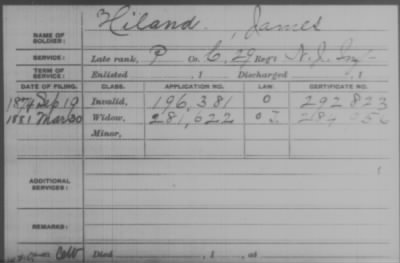 NAME OF SOLDIER: Hiland, James
SERVICE: Late rank, P Co. C, 29 Reg't N.J. Inf
TERM OF SERVICE: Enlisted , 1 Discharged , 1
DATE OF FILING. CLASS. APPLICATION NO. LAW. CERTIFICATE NO.
1874 Sep 19 Invalid, 196,381 O 292,823
1881 Mar 30 Widow, 281,622 284,056
Minor,
ADDITIONAL SERVICES:
REMARKS:
Died , 1 , at